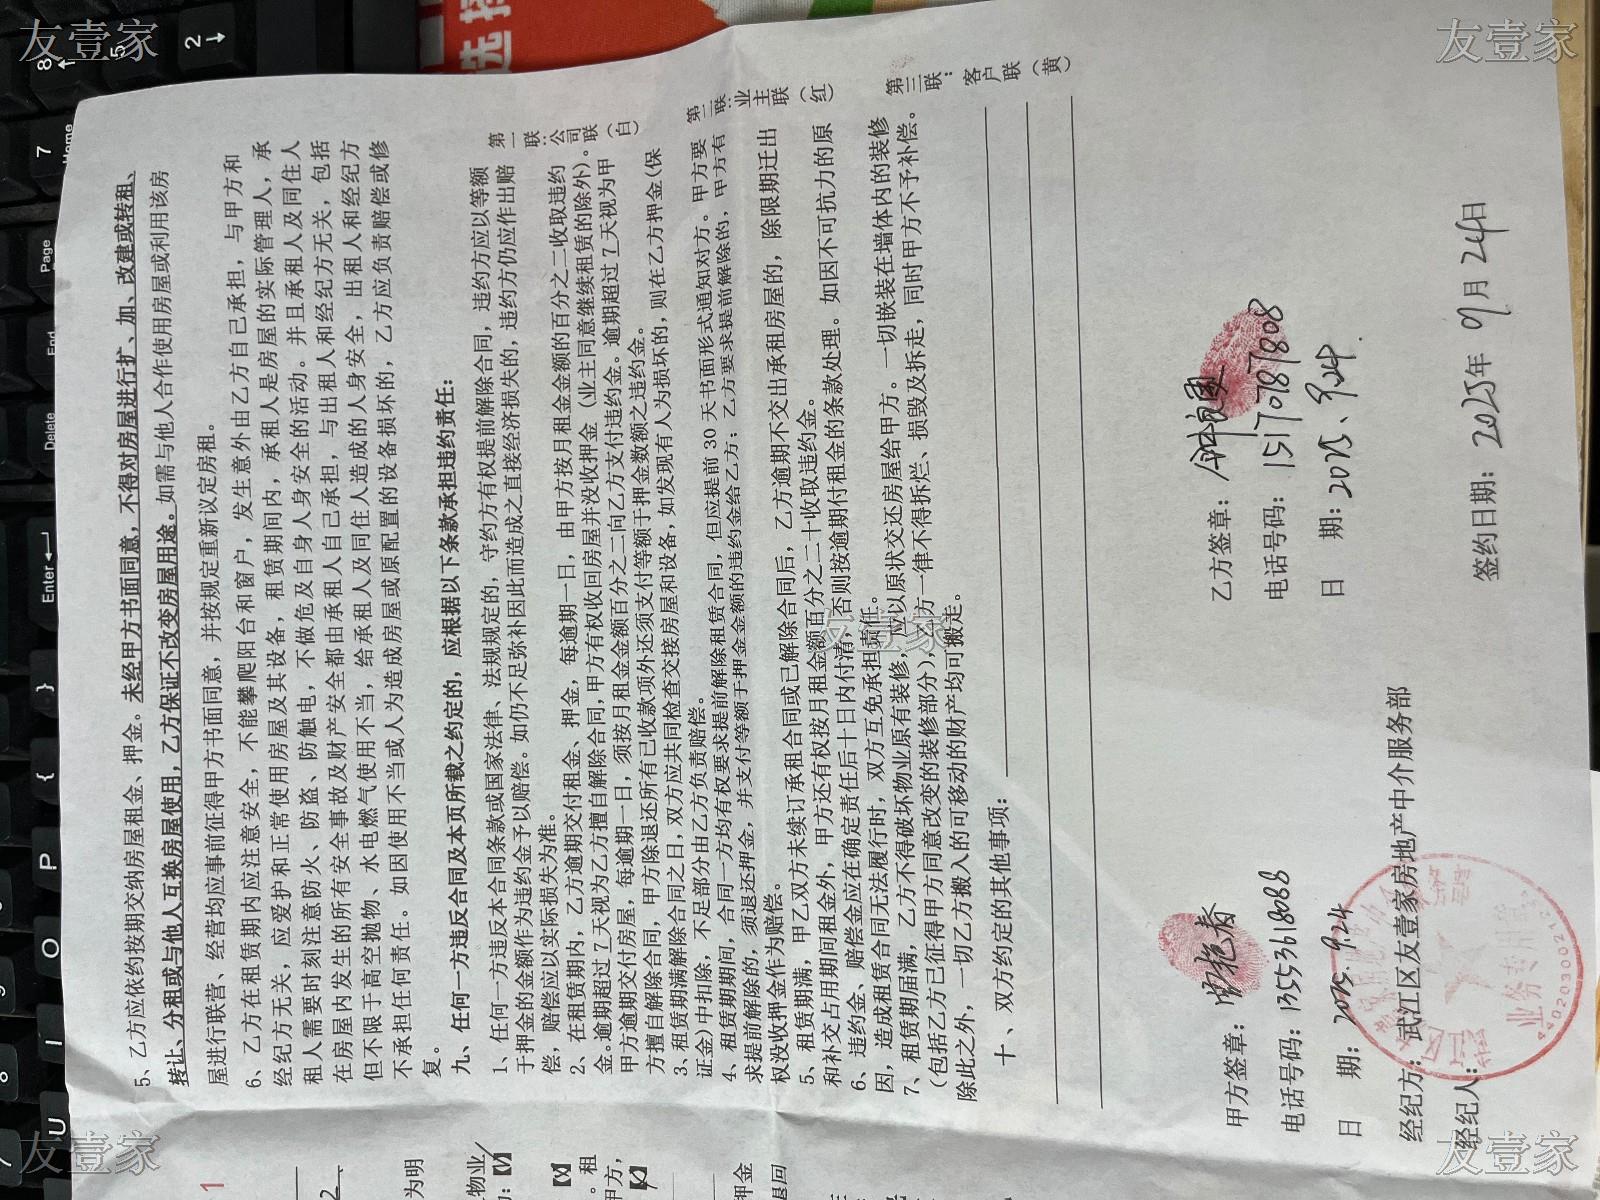 5、乙方应依约按期交纳房屋租金、押金。未经甲方书面同意，不得对房屋进行扩、加、改建或转租、
转让、分租或与他人互换房屋使用，乙方保证不改变房屋用途。如需与他人合作使用房屋或利用该房
屋进行联营、经营均应事前征得甲方书面同意，并按规定重新议定房租。
6、乙方在租赁期内应注意安全，不能攀爬阳台和窗户，发生意外由乙方自己承担，与甲方和
经纪方无关，应爱护和正常使用房屋及其设备，租赁期间内，承租人是房屋的实际管理人，承
租人需要时刻注意防火、防盗、防触电，不做危及自身人身安全的活动。并且承租人及同住人
在房屋内发生的所有安全事故及财产安全都由承租人自己承担，与出租人和经纪方无关，包括
但不限于高空抛物、水电燃气使用不当，给承租人及同住人造成的人身安全，出租人和经纪方
不承担任何责任。如因使用不当或人为造成房屋或原配置的设备损坏的，乙方应负责赔偿或修
复。
九、任何一方违反合同及本页所载之约定的，应根据以下条款承担违约责任：
1、任何一方违反本合同条款或国家法律、法规规定的，守约方有权提前解除合同，违约方应以等额
于押金的金额作为违约金予以赔偿。如仍不足弥补因此而造成之直接经济损失的，违约方仍应作出赔
偿，赔偿应以实际损失为准。
2、在租赁期内，乙方逾期交付租金、押金，每逾期一日，由甲方按月租金金额的百分之二收取违约
金。逾期超过7天视为乙方擅自解除合同，甲方有权收回房屋并没收押金（业主同意继续租赁的除外）。
甲方逾期交付房屋，每逾期一日，须按月租金金额百分之二向乙方支付违约金。逾期超过7天视为甲
方擅自解除合同，甲方除退还所有已收款项外还须支付等额于押金数额之违约金。
3、租赁期满解除合同之日，双方应共同检查交接房屋和设备，如发现有人为损坏的，则在乙方押金（保
证金）中扣除，不足部分由乙方负责赔偿。
4、租赁期期间，合同一方均有权要求提前解除租赁合同，但应提前30天书面形式通知对方。甲方要
求提前解除的，须退还押金，并支付等额于押金金额的违约金给乙方；乙方要求提前解除的，甲方有
权没收押金作为赔偿。
5、租赁期满，甲乙双方未续订承租合同或已解除合同后，乙方逾期不交出承租房屋的，除限期迁出
和补交占用期间租金外，甲方还有权按月租金额百分之二十收取违约金。
6、违约金、赔偿金应在确定责任后十日内付清，否则按逾期付租金的条款处理。如因不可抗力的原
因，造成租赁合同无法履行时，双方互免承担责任。
7、租赁期届满，乙方不得破坏物业原有装修，应以原状交还房屋给甲方。一切嵌装在墙体内的装修
（包括乙方已征得甲方同意改变的装修部分），乙方一律不得拆烂、损毁及拆走，同时甲方不予补偿。
除此之外，一切乙方搬入的可移动的财产均可搬走。
十、双方约定的其他事项：
第一联：公司联（白）
第二联：业主联（红）
第三联：客户联（黄）
甲方签章：
电话号码：13553618088
日 期：2025.9.24
经纪方：武江区友壹家房地产中介服务部
经纪人：
业务专用章
乙方签章：
电话号码：15170187808
日 期：2025、9.24.
签约日期：2025年9月24日
为明
物业
租
甲方，
押金
退回
1
2、
选择
Home
Page
End
Delete
Enter
7
8
5
2
P
O
I
U
{
}
友壹家
友壹家
友壹家
友壹家
友壹家